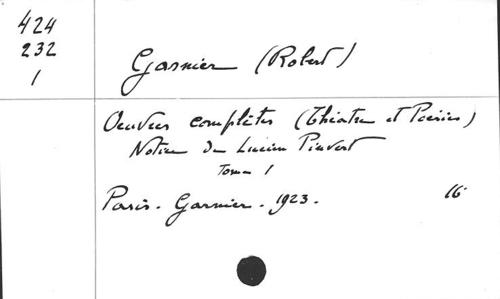 424
232
1
Garnier (Robert)
Oeuvres complètes (Théatre et Poésies)
Notice de Lucien Pinvert
Tome 1
Paris. Garnier. 1923. 16